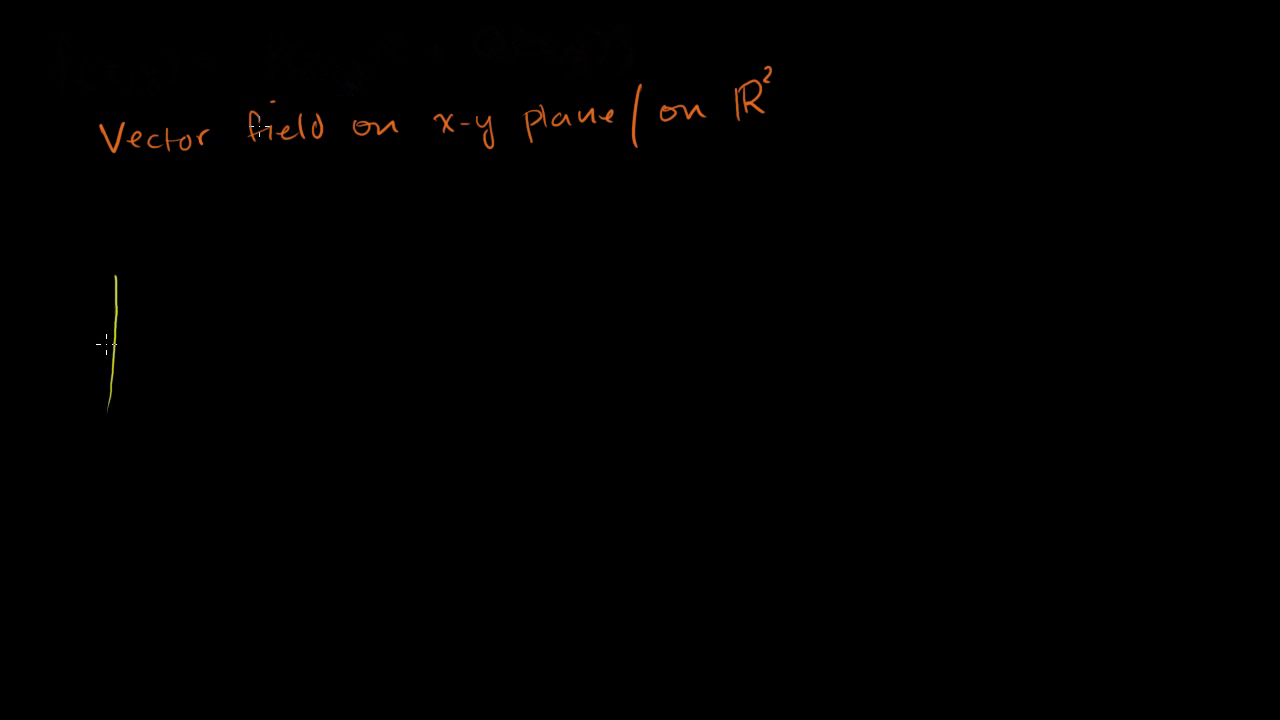 Vector field on x-y plane / on ℝ²